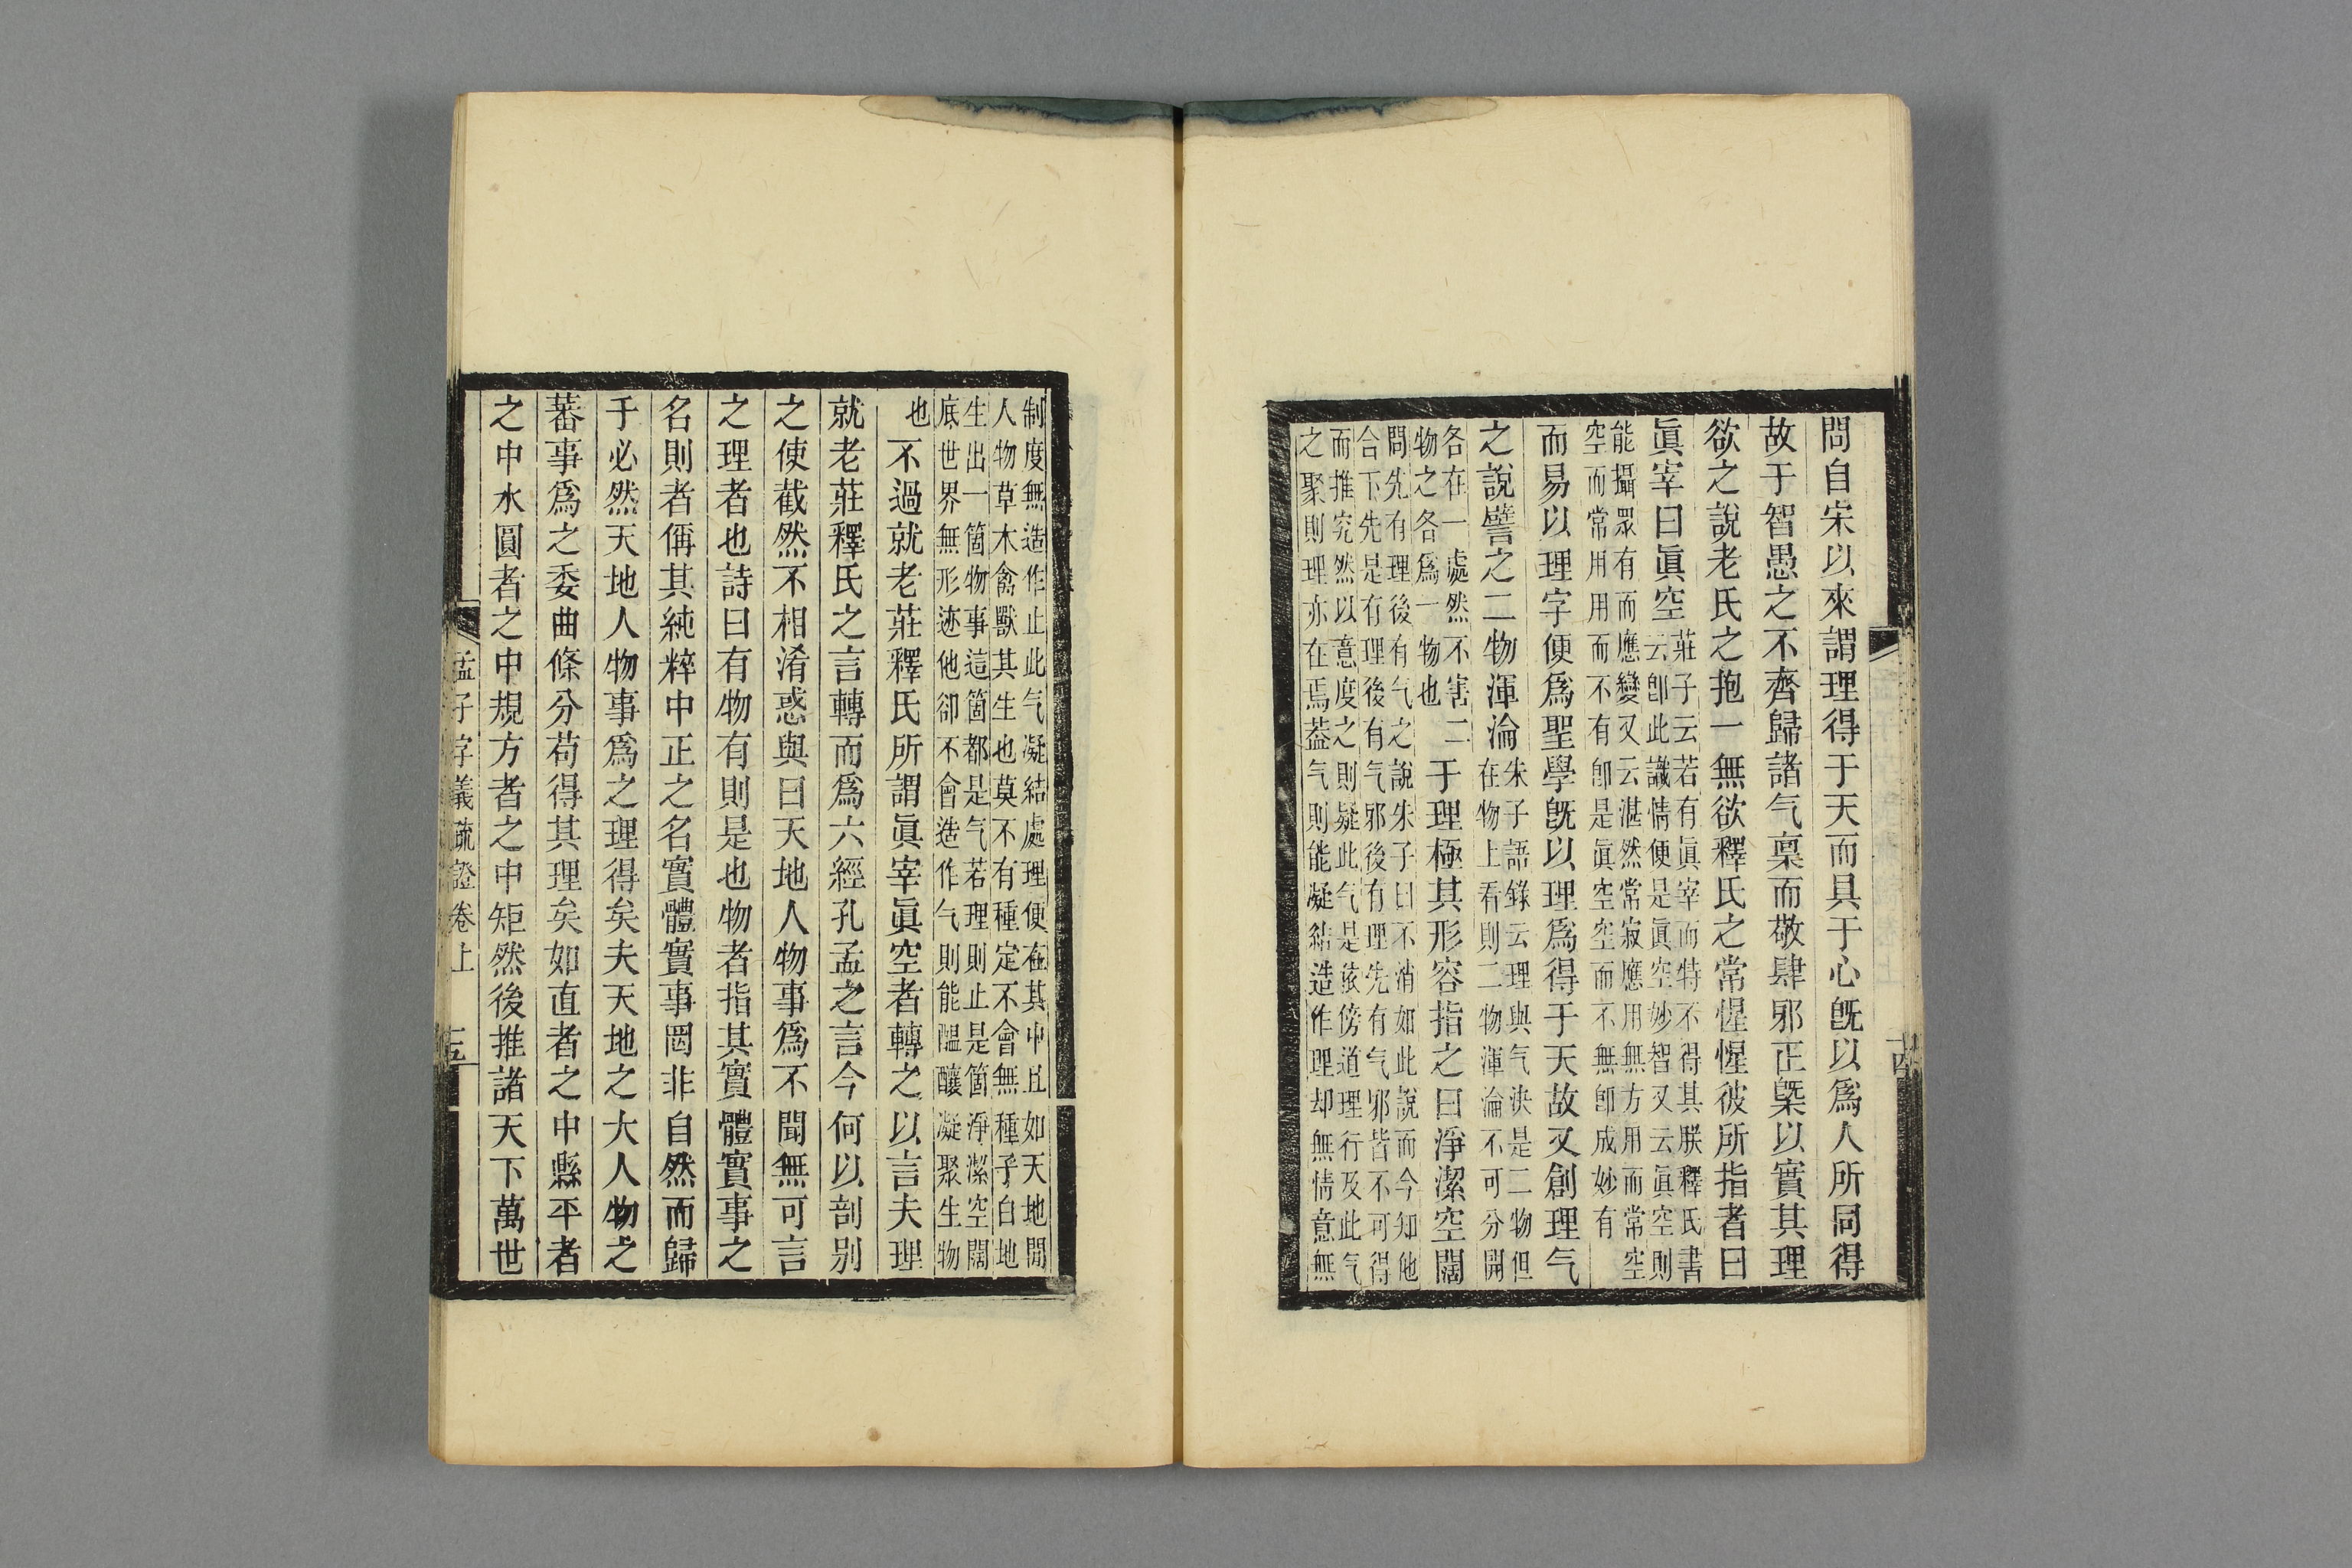 問自宋以來謂理得于天而具于心旣以爲人所同得
故于智愚之不齊歸諸气稟而敬肆邪正槩以實其理
欲之說老氏之抱一無欲釋氏之常惺惺彼所指者曰
眞宰曰眞空
莊子云若有眞宰而特不得其朕釋氏書
云卽此識情便是眞空妙智又云眞空則
能攝眾有而應變又云湛然常寂應用無方用而常空
空而常用用而不有卽是眞空空而不無卽成妙有
而易以理字便爲聖學旣以理爲得于天故又創理气
之說譬之二物渾淪
朱子語錄云理與气决是二物但
在物上看則二物渾淪不可分開
各在一處然不害二
物之各爲一物也
于理極其形容指之曰淨潔空闊
問先有理後有气之說朱子曰不消如此說而今知他
合下先是有理後有气邪後有理先有气邪皆不可得
而推究然以意度之則疑此气是依傍道理行及此气
之聚則理亦在焉葢气則能凝結造作理却無情意無
制度無造作止此气凝結處理便在其中且如天地閒
人物草木禽獸其生也莫不有種定不會無種子白地
生出一箇物事這箇都是气若理則止是箇淨潔空闊
底世界無形迹他卻不會造作气則能醞釀凝聚生物
也
不過就老莊釋氏所謂眞宰眞空者轉之以言夫理
就老莊釋氏之言轉而爲六經孔孟之言今何以剖别
之使截然不相淆惑與曰天地人物事爲不聞無可言
之理者也詩曰有物有則是也物者指其實體實事之
名則者偁其純粹中正之名實體實事罔非自然而歸
于必然天地人物事爲之理得矣夫天地之大人物之
蕃事爲之委曲條分苟得其理矣如直者之中縣平者
之中水圓者之中規方者之中矩然後推諸天下萬世
孟子字義疏證卷上
十五